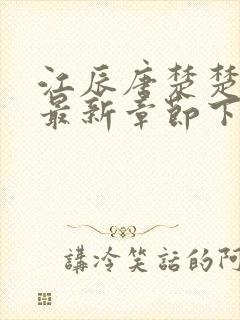 江辰唐楚楚
最新章節下
講冷笑話的阿